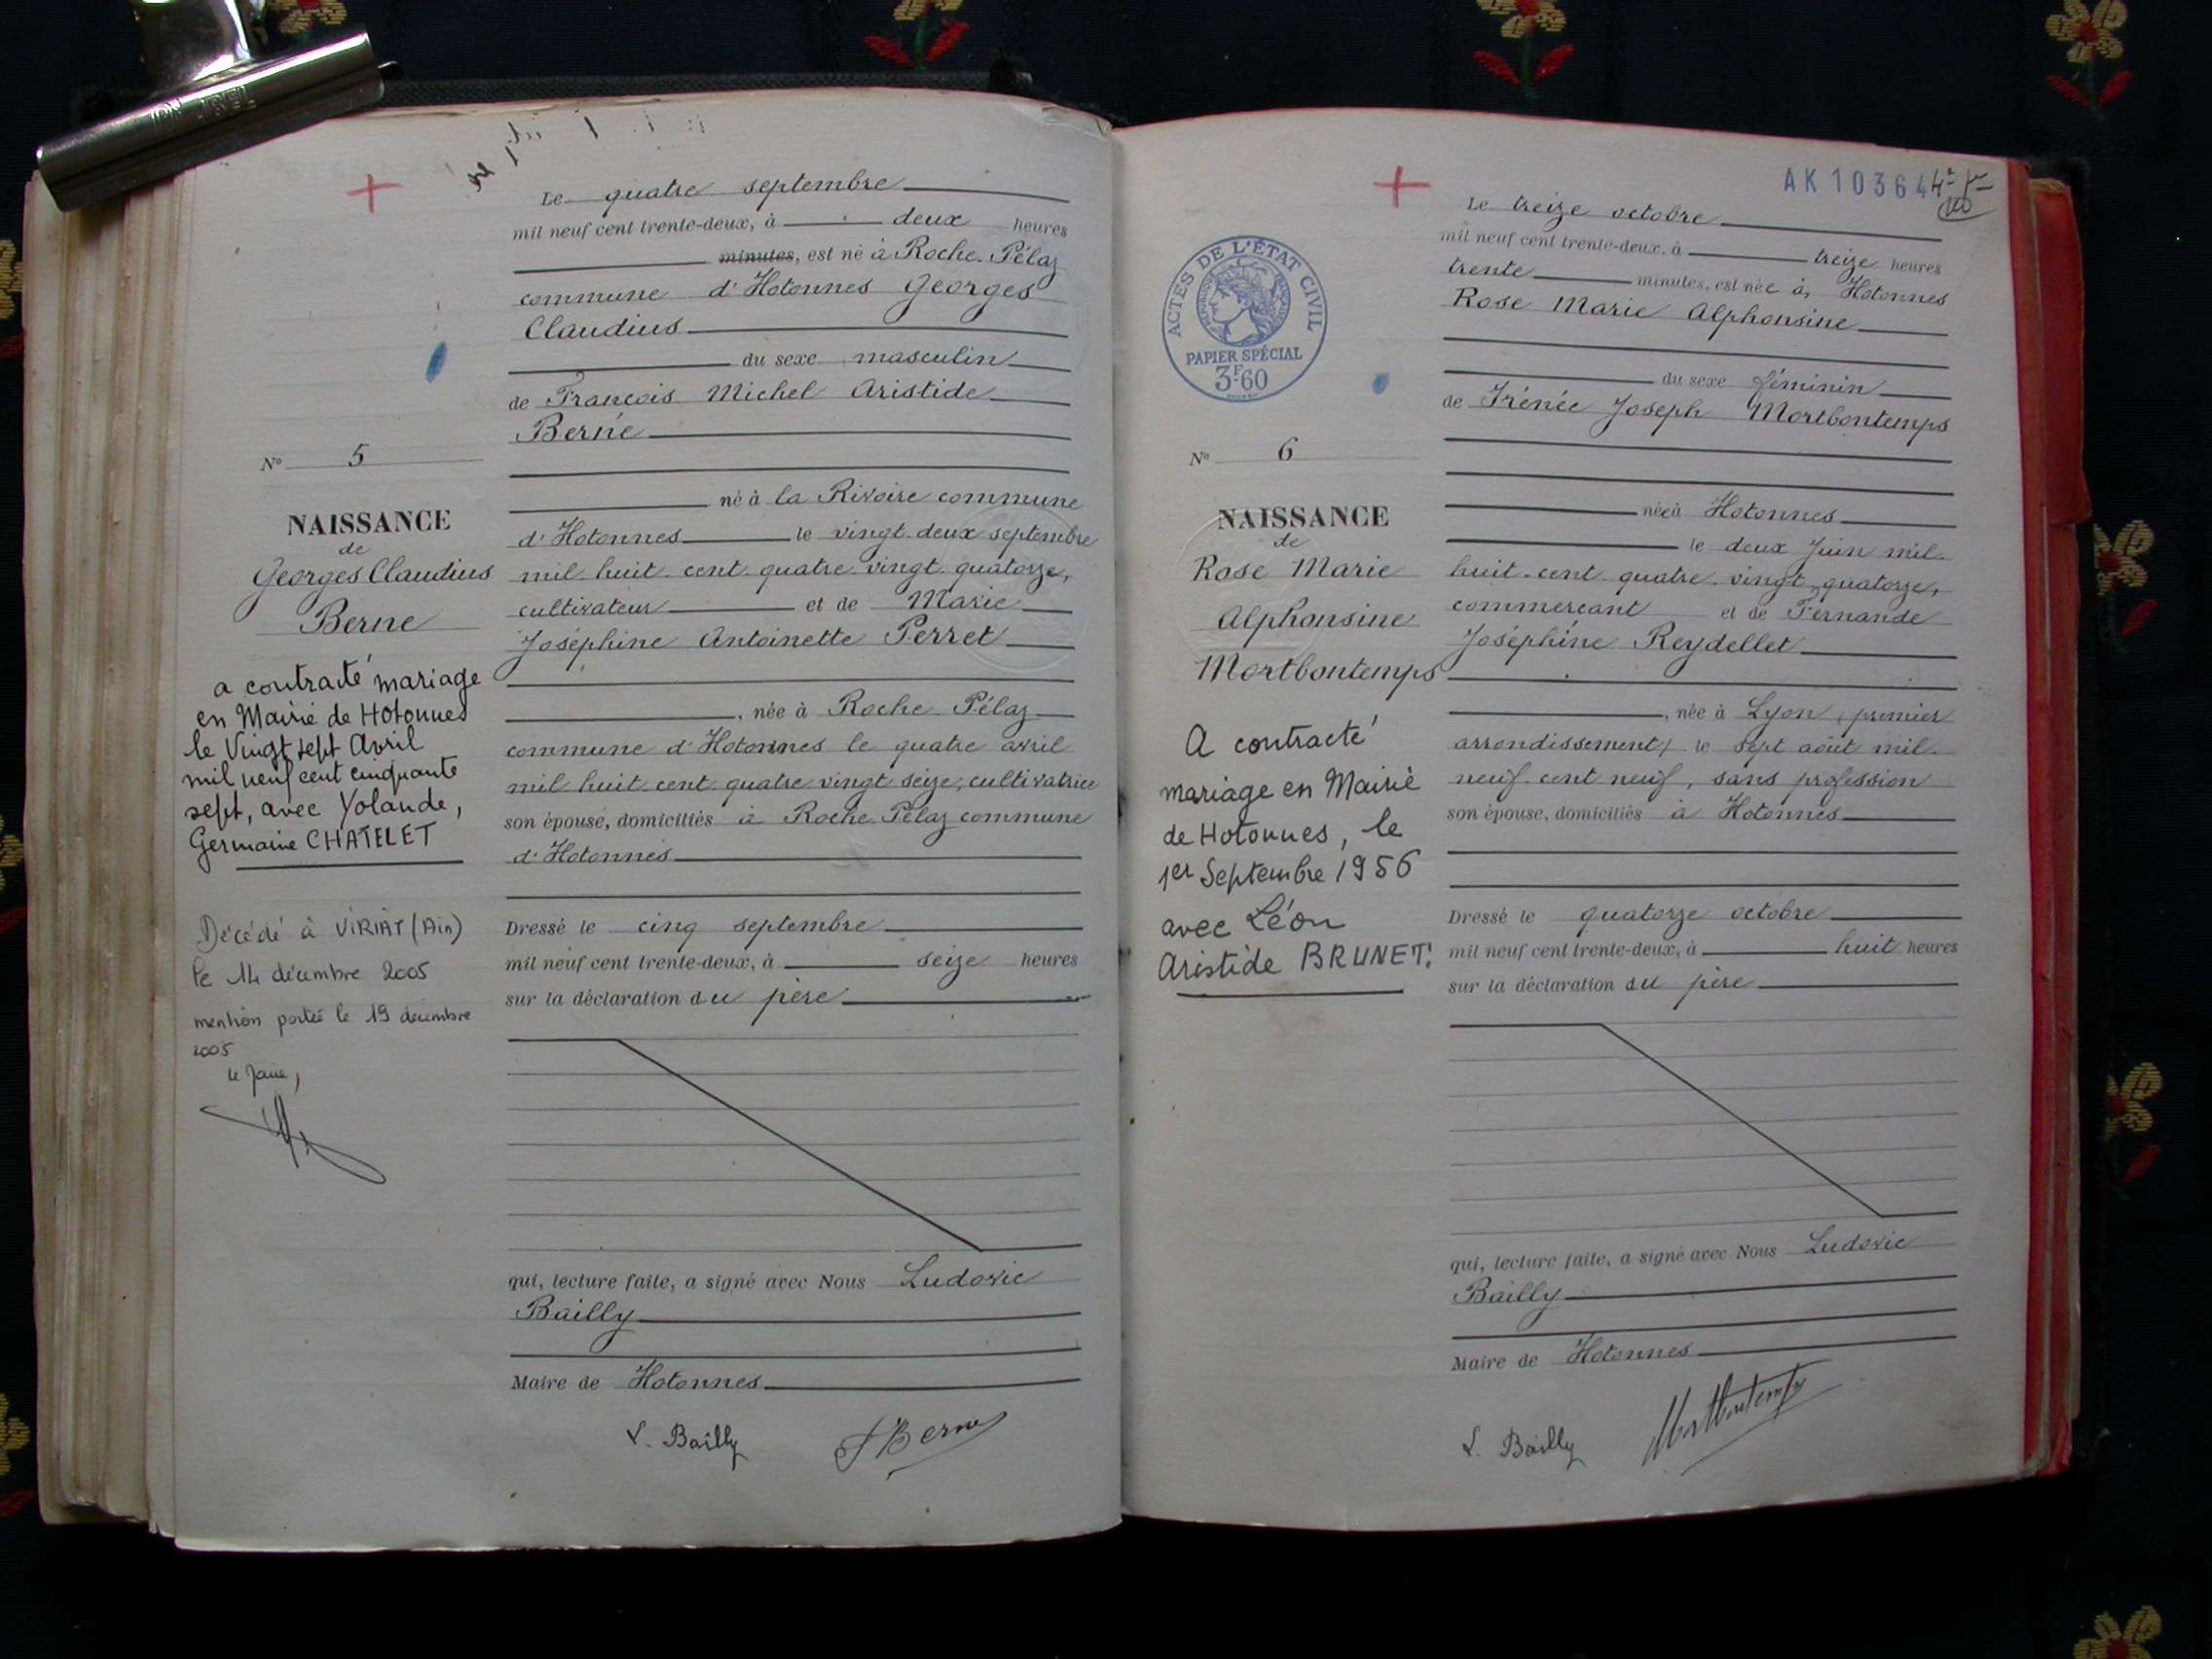 Le quatre septembre
mil neuf cent trente-deux, à deux heures
minutes, est né à Roche-Pélaz
commune d'Hotonnes Georges
Claudius
du sexe masculin
de François Michel Aristide
Berne
né à la Rivoire commune
d'Hotonnes le vingt-deux septembre
mil huit cent quatre-vingt-quatorze,
cultivateur et de Marie
Joséphine Antoinette Perret
, née à Roche-Pélaz
commune d'Hotonnes le quatre avril
mil huit cent quatre vingt seize, cultivatrice
son épouse, domiciliés à Roche-Pélaz commune
d'Hotonnes
Dressé le cinq septembre
mil neuf cent trente-deux, à seize heures
sur la déclaration du père
qui, lecture faite, a signé avec Nous Ludovic
Bailly
Maire de Hotonnes
L. Bailly
Berne
No 5
NAISSANCE
de
Georges Claudius
Berne
a contracté mariage
en Mairie de Hotonnes
le Vingt sept Avril
mil neuf cent cinquante
sept, avec Yolande,
Germaine CHATELET
Décédé à VIRIAT (Ain)
le 14 décembre 2005
mention portée le 19 décembre
2005
le Maire,
AK 10364
Le treize octobre
mil neuf cent trente-deux, à treize heures
trente minutes, est née à, Hotonnes
Rose Marie Alphonsine
du sexe féminin
de Irénée Joseph Mortbontemps
né à Hotonnes
le deux Juin mil-
huit-cent quatre-vingt-quatorze,
commerçant et de Fernande
Joséphine Reydellet
, née à Lyon (premier
arrondissement) le sept août mil-
neuf-cent neuf, sans profession
son épouse, domiciliés à Hotonnes
Dressé le quatorze octobre
mil neuf cent trente-deux, à huit heures
sur la déclaration du père
qui, lecture faite, a signé avec Nous Ludovic
Bailly
Maire de Hotonnes
L. Bailly
Mortbontemps
ACTES DE L'ÉTAT CIVIL
RÉPUBLIQUE FRANÇAISE
PAPIER SPÉCIAL
3F60
No 6
NAISSANCE
de
Rose Marie
Alphonsine
Mortbontemps
A contracté
mariage en Mairie
de Hotonnes, le
1er Septembre 1956
avec Léon
Aristide BRUNET.